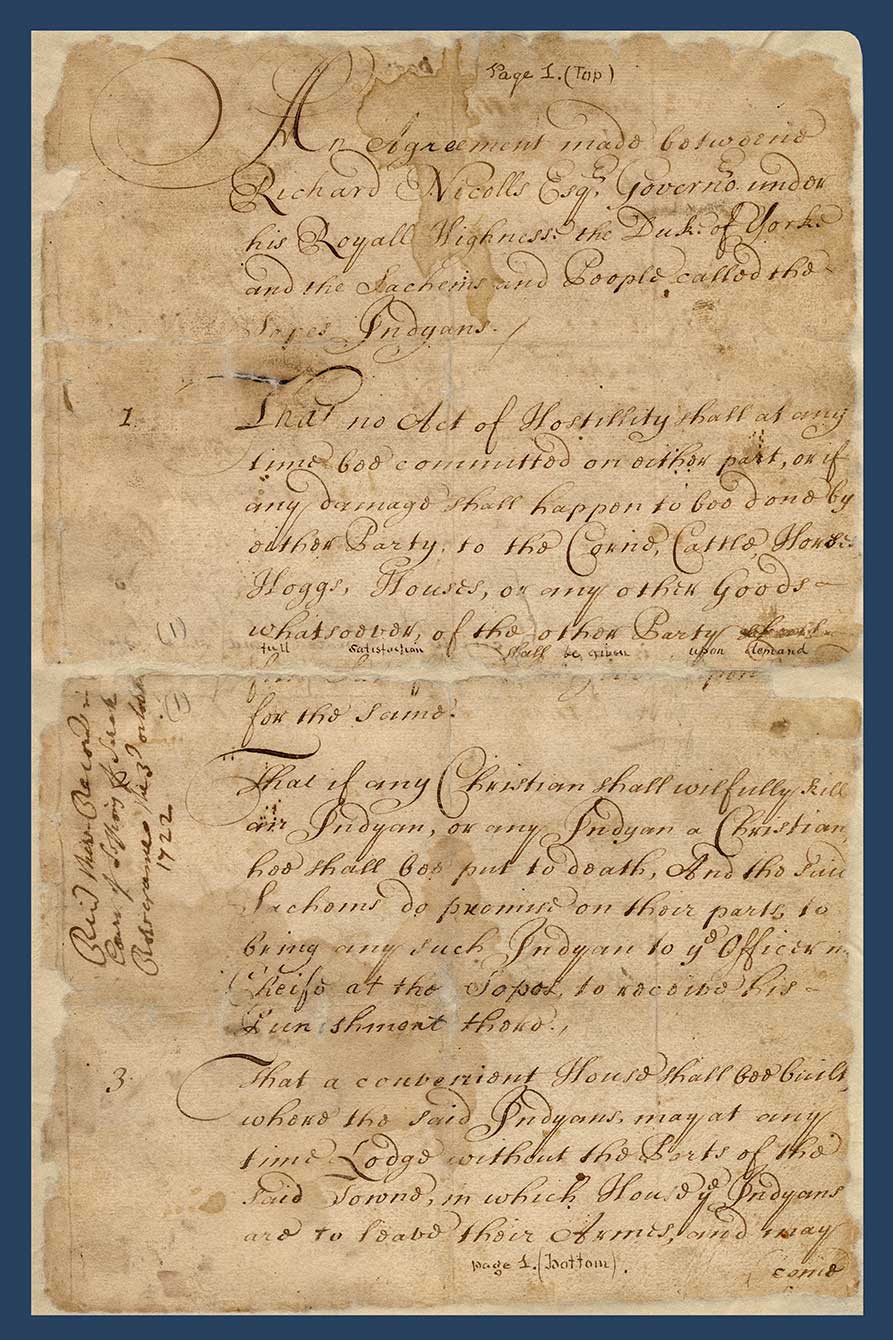 Page 1. (Top)
An Agreement made betweene
Richard Nicolls Esqr. Governor. under
his Royall Highnesse the Duke of Yorke
and the Sachems and People called the
Sopes Indyans.
1. That no Act of Hostillity shall at any
time bee committed on either part, or if
any damage shall happen to bee done by
either Party, to the Corne, Cattle, Horses
Hoggs, Houses, or any other Goods
whatsoever, of the other Party
full satisfaction shall be given upon demand
(1)
(1)
upon
for the same.
That if any Christian shall wilfully kill
an Indyan, or any Indyan a Christian,
hee shall bee put to death, And the said
Sachems do promise on their parts, to
bring any such Indyan to ye Officer in
Cheife at the Sopes, to receive his
Punishment there.
3. That a convenient House shall bee built,
where the said Indyans, may at any
time Lodge without the Ports of the
said Towne, in which House ye Indyans
are to leave their Armes, and may
page 1. (bottom).
come
1722